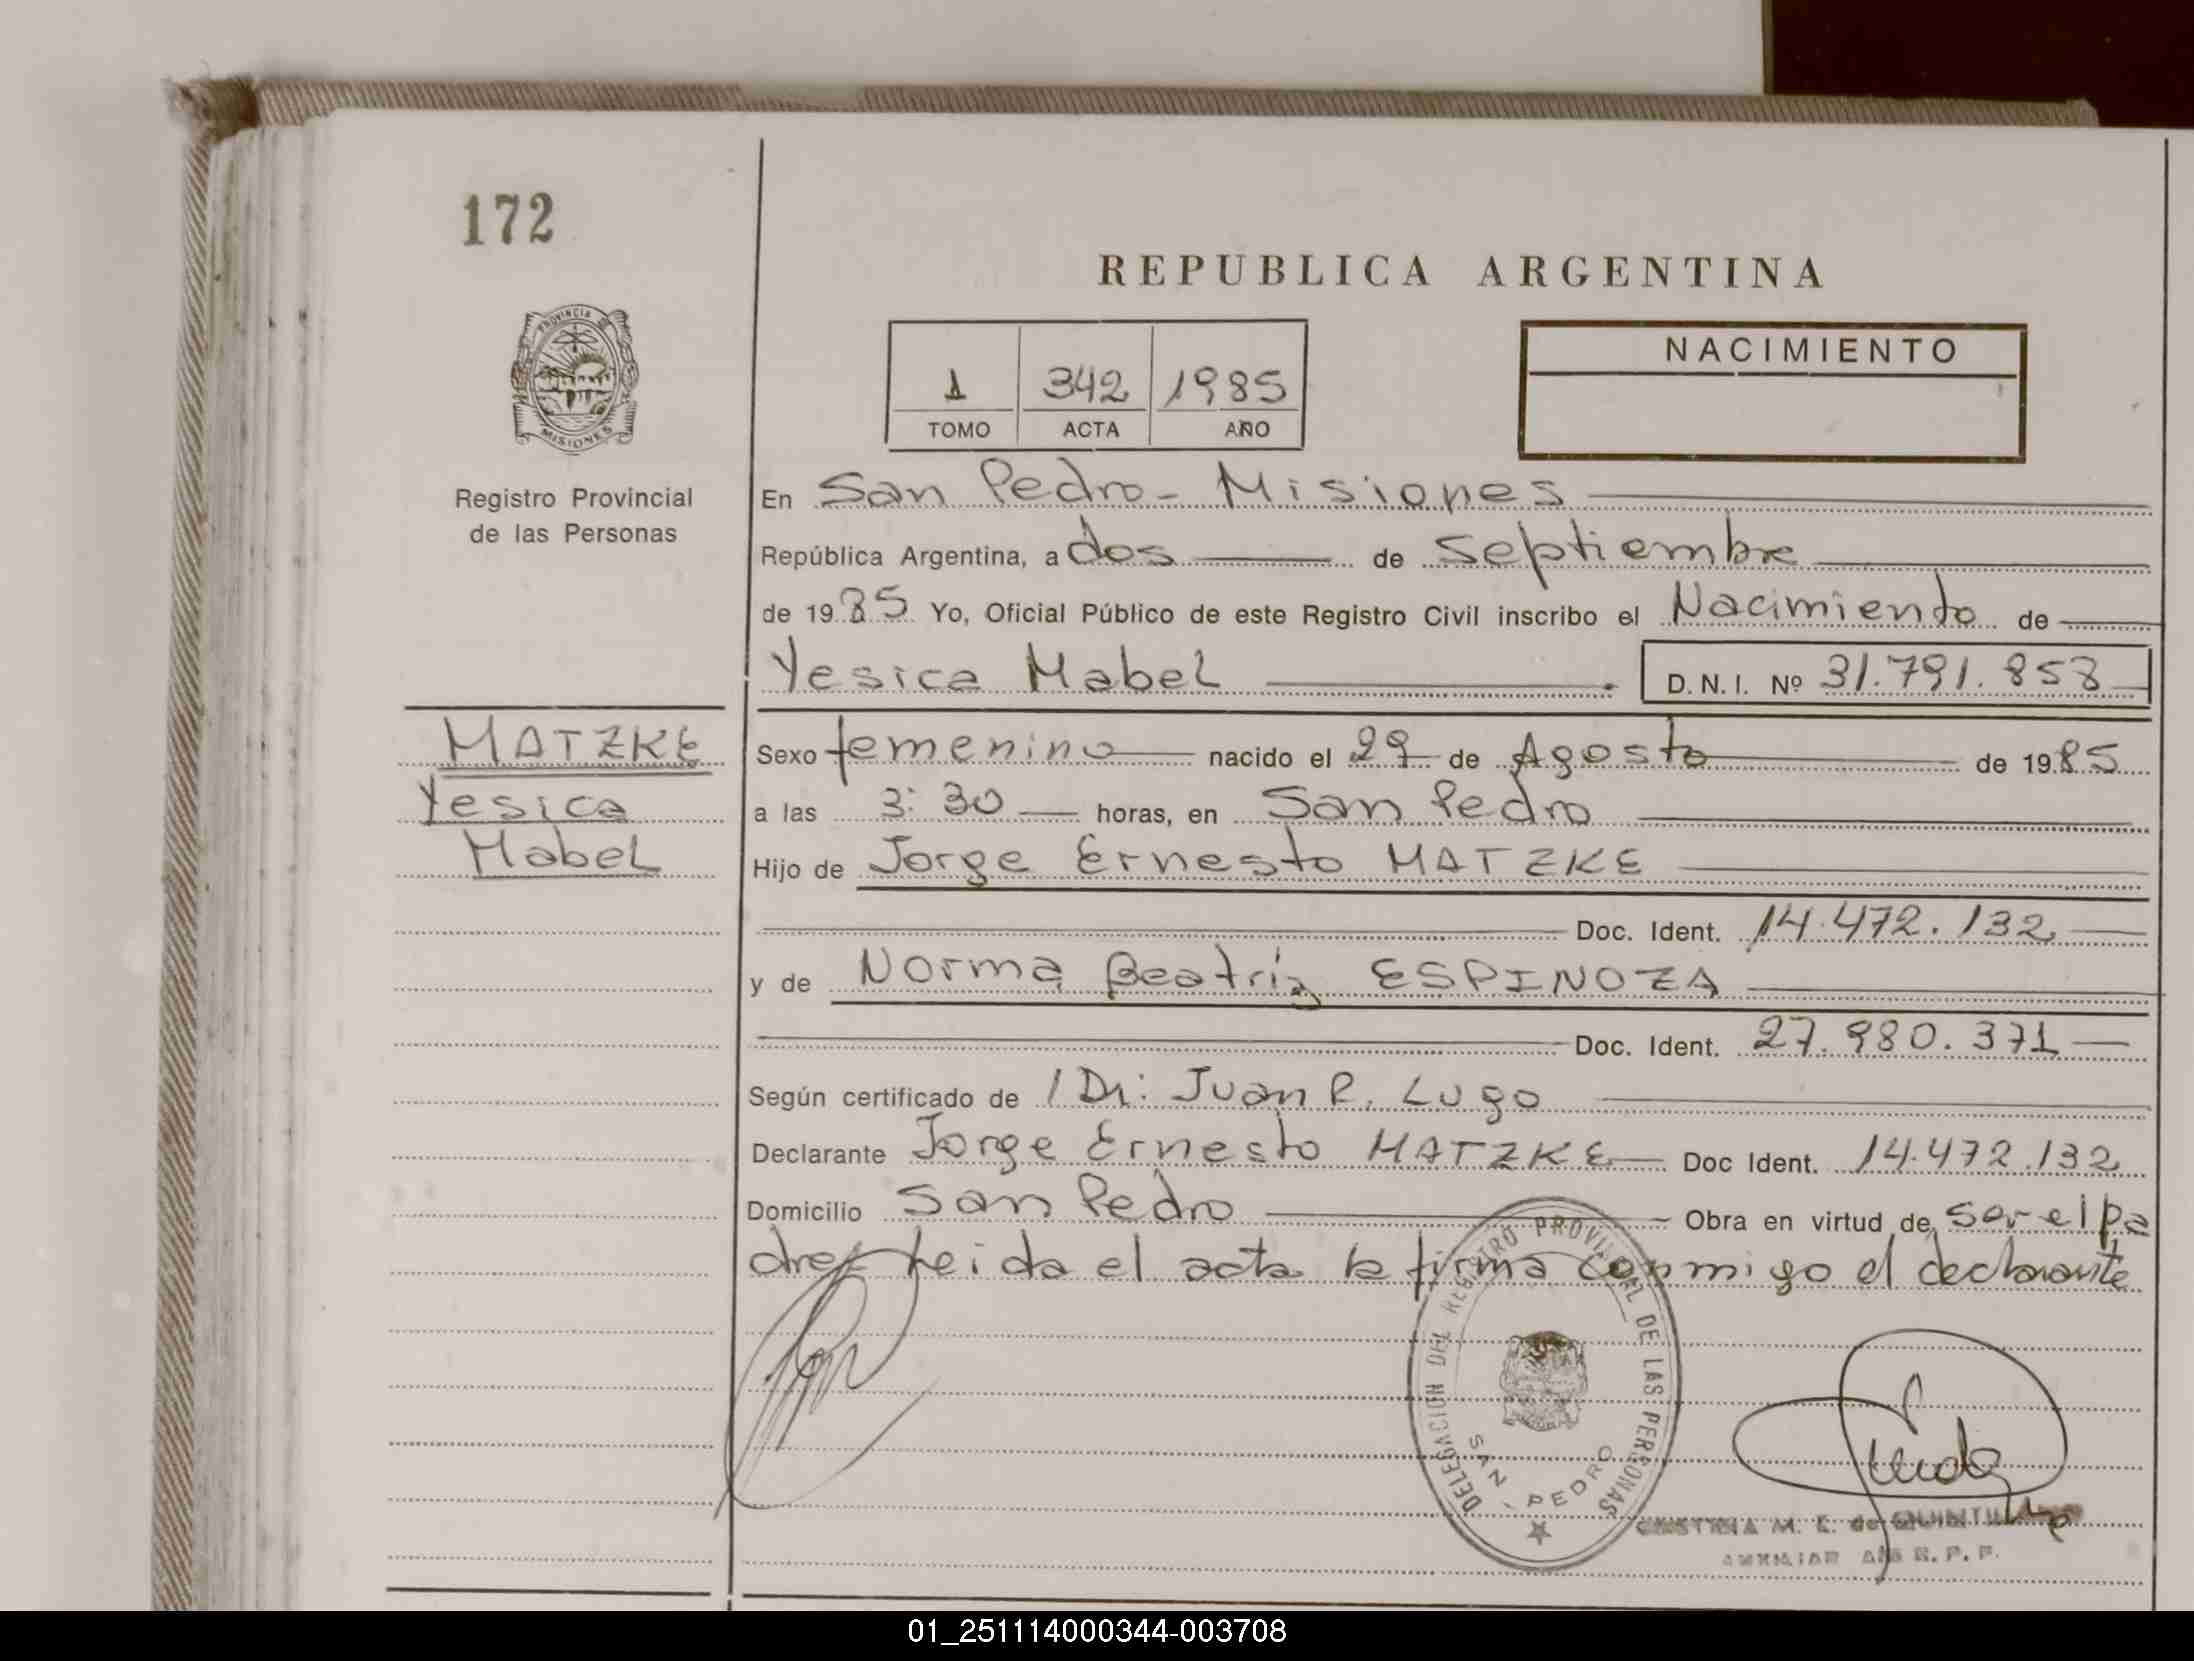 172
REPUBLICA ARGENTINA
NACIMIENTO
1 342 1985
TOMO ACTA AÑO
PROVINCIA DE
MISIONES
Registro Provincial
de las Personas
En San Pedro - Misiones
República Argentina, a dos de Septiembre
de 1985 Yo, Oficial Público de este Registro Civil inscribo el Nacimiento de
Yesica Mabel D.N.I. Nº 31.791.858
MATZKE
Yesica
Mabel
Sexo femenino nacido el 29 de Agosto de 1985
a las 3:30 horas, en San Pedro
Hijo de Jorge Ernesto MATZKE
Doc. Ident. 14.472.132
y de Norma Beatriz ESPINOZA
Doc. Ident. 27.980.371
Según certificado de Dr: Juan R. Lugo
Declarante Jorge Ernesto MATZKE Doc Ident. 14.472.132
Domicilio San Pedro Obra en virtud de ser el pa
dre Leida el acta la firma conmigo el declarante
DELEGACION DEL REGISTRO PROVINCIAL DE LAS PERSONAS
SAN PEDRO
CRISTINA M. E. de
AUXILIAR R. P. P.
01_251114000344-003708